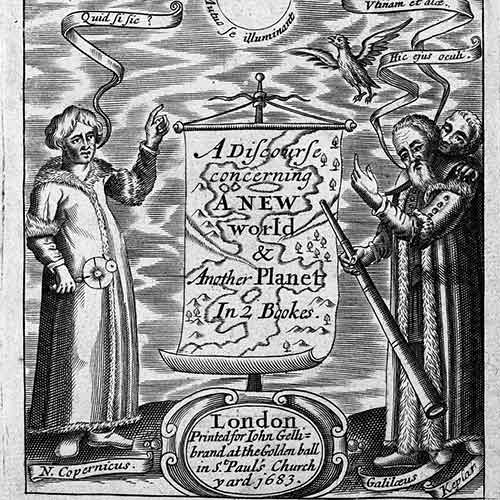 Quid si sic?
Mutuo se illuminant
Vtinam et alæ.
Hic ejus oculi.
A Discourse
concerning
A NEW
world
&
Another Planet
In 2 Bookes.
London
Printed for Iohn Gelli=
brand at the Golden ball
in St. Pauls Church
yard 1683.
N. Copernicus.
Galilæus
Keplar